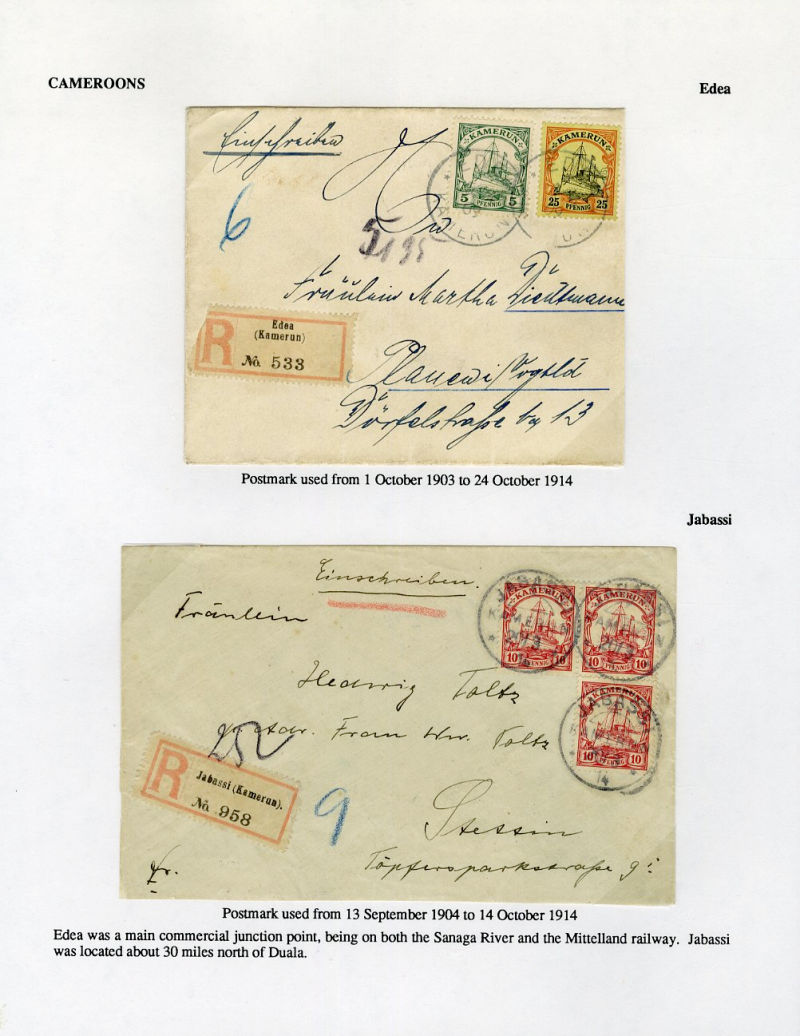 CAMEROONS
Edea
Einschreiben
KAMERUN
5 PFENNIG 5
KAMERUN
25 PFENNIG 25
KAMERUN
6
Fräulein Martha
Edea
(Kamerun)
R No. 533
Plauen i/Vogtld
Dörfelstraße 13
Postmark used from 1 October 1903 to 24 October 1914
Jabassi
Einschreiben.
Fräulein
KAMERUN
10 PFENNIG 10
KAMERUN
10 PFENNIG 10
JABASSI
Hedwig Toltz
KAMERUN
10 PFENNIG 10
JABASSI
14
Frau Ww. Toltz
252
R Jabassi (Kamerun).
No. 958
9
Stettin
Töpfersparkstraße 9
Fr.
Postmark used from 13 September 1904 to 14 October 1914
Edea was a main commercial junction point, being on both the Sanaga River and the Mittelland railway. Jabassi
was located about 30 miles north of Duala.